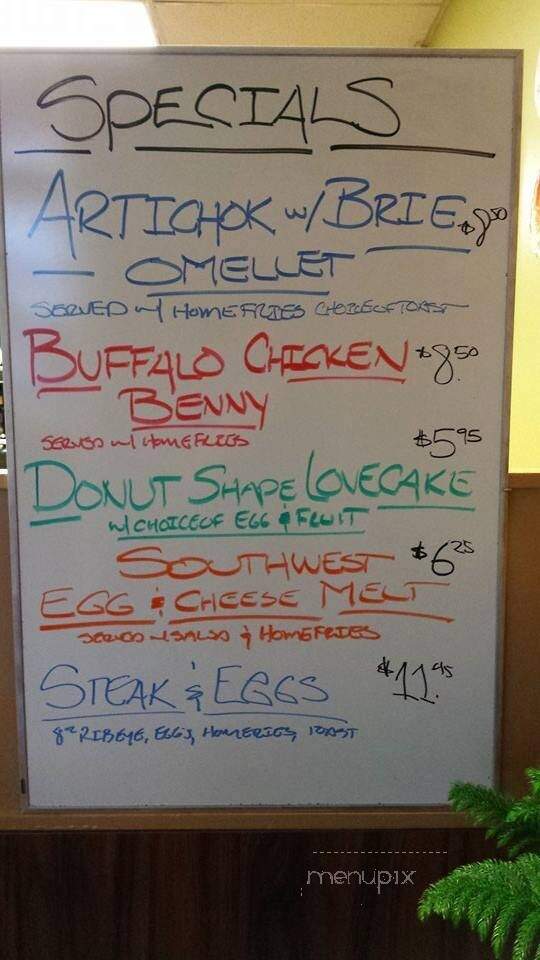 SPECIALS
ARTICHOK w/ BRIE $8.50
OMELLET
SERVED w/ HOMEFRIES CHOICE OF TOAST
BUFFALO CHICKEN $8.50
BENNY
SERVED w/ HOMEFRIES
$5.95
DONUT SHAPE LOVECAKE
w/ CHOICE OF EGG & FRUIT
SOUTHWEST $6.25
EGG & CHEESE MELT
SERVED w/ SALSA & HOMEFRIES
STEAK & EGGS $11.95
8oz RIBEYE, EGGS, HOMEFRIES, TOAST
menupix